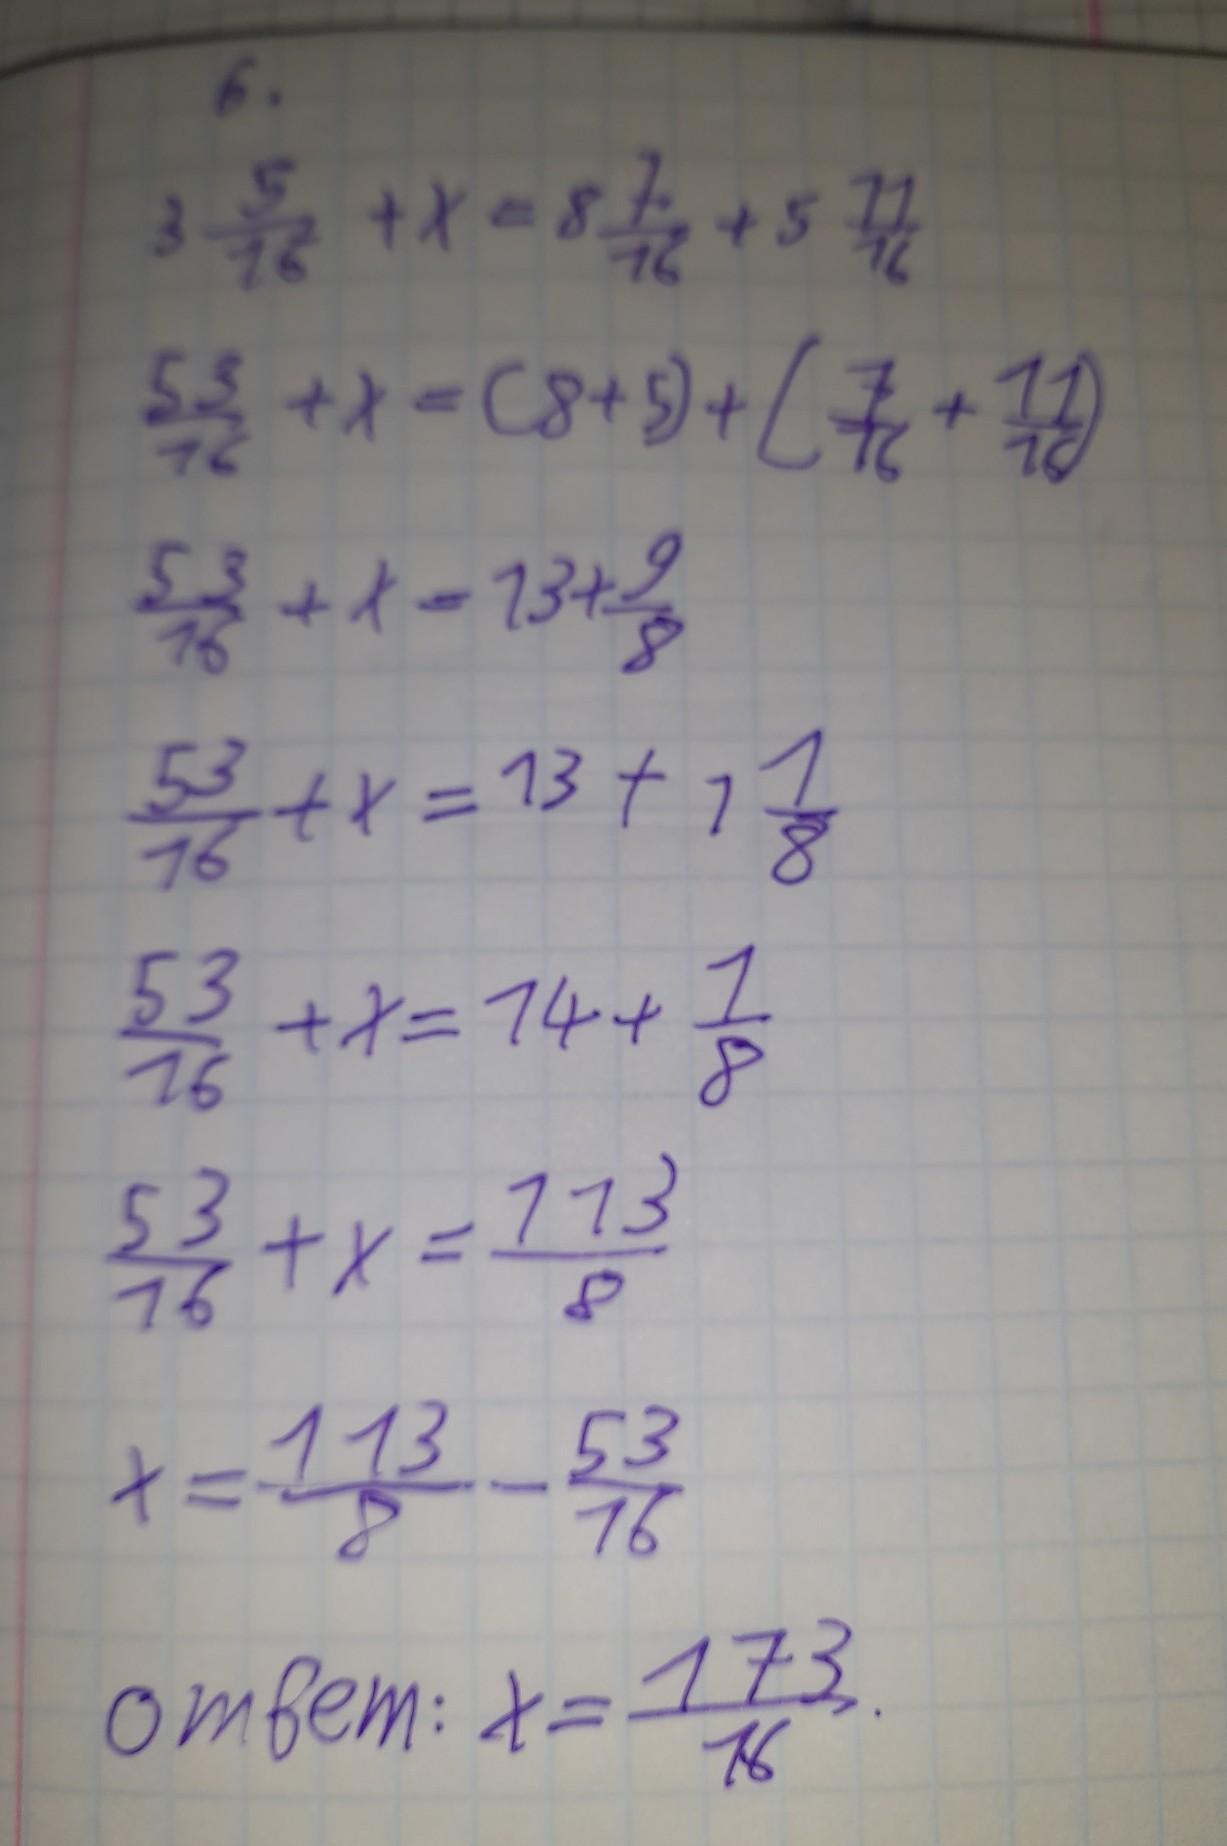 6.
3 5/16 + x = 8 7/16 + 5 11/16
53/16 + x = (8+5) + (7/16 + 11/16)
53/16 + x = 13 + 9/8
53/16 + x = 13 + 1 1/8
53/16 + x = 14 + 1/8
53/16 + x = 113/8
x = 113/8 - 53/16
ответ: x = 173/16.